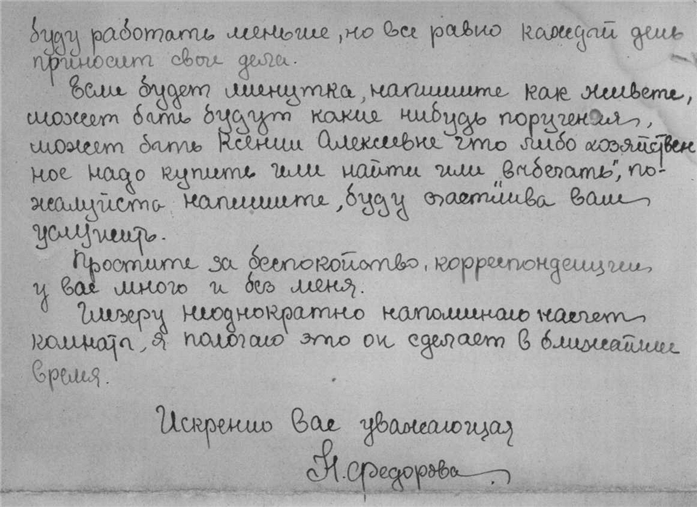 буду работать меньше, но все равно каждый день
приносит свои дела.
Если будет минутка, напишите как живете,
может быть будут какие нибудь поручения,
может быть Ксении Алексеевне что либо хозяйствен
ное надо купить или найти или „выбегать", по-
жалуйста напишите, буду счастлива вам
услужить.
Простите за беспокойство, корреспонденции
у вас много и без меня.
Глизеру неоднократно напоминаю насчет
комнаты, я пологаю это он сделает в ближайшие
время.
Искренно Вас уважающая
Н. Федорова.